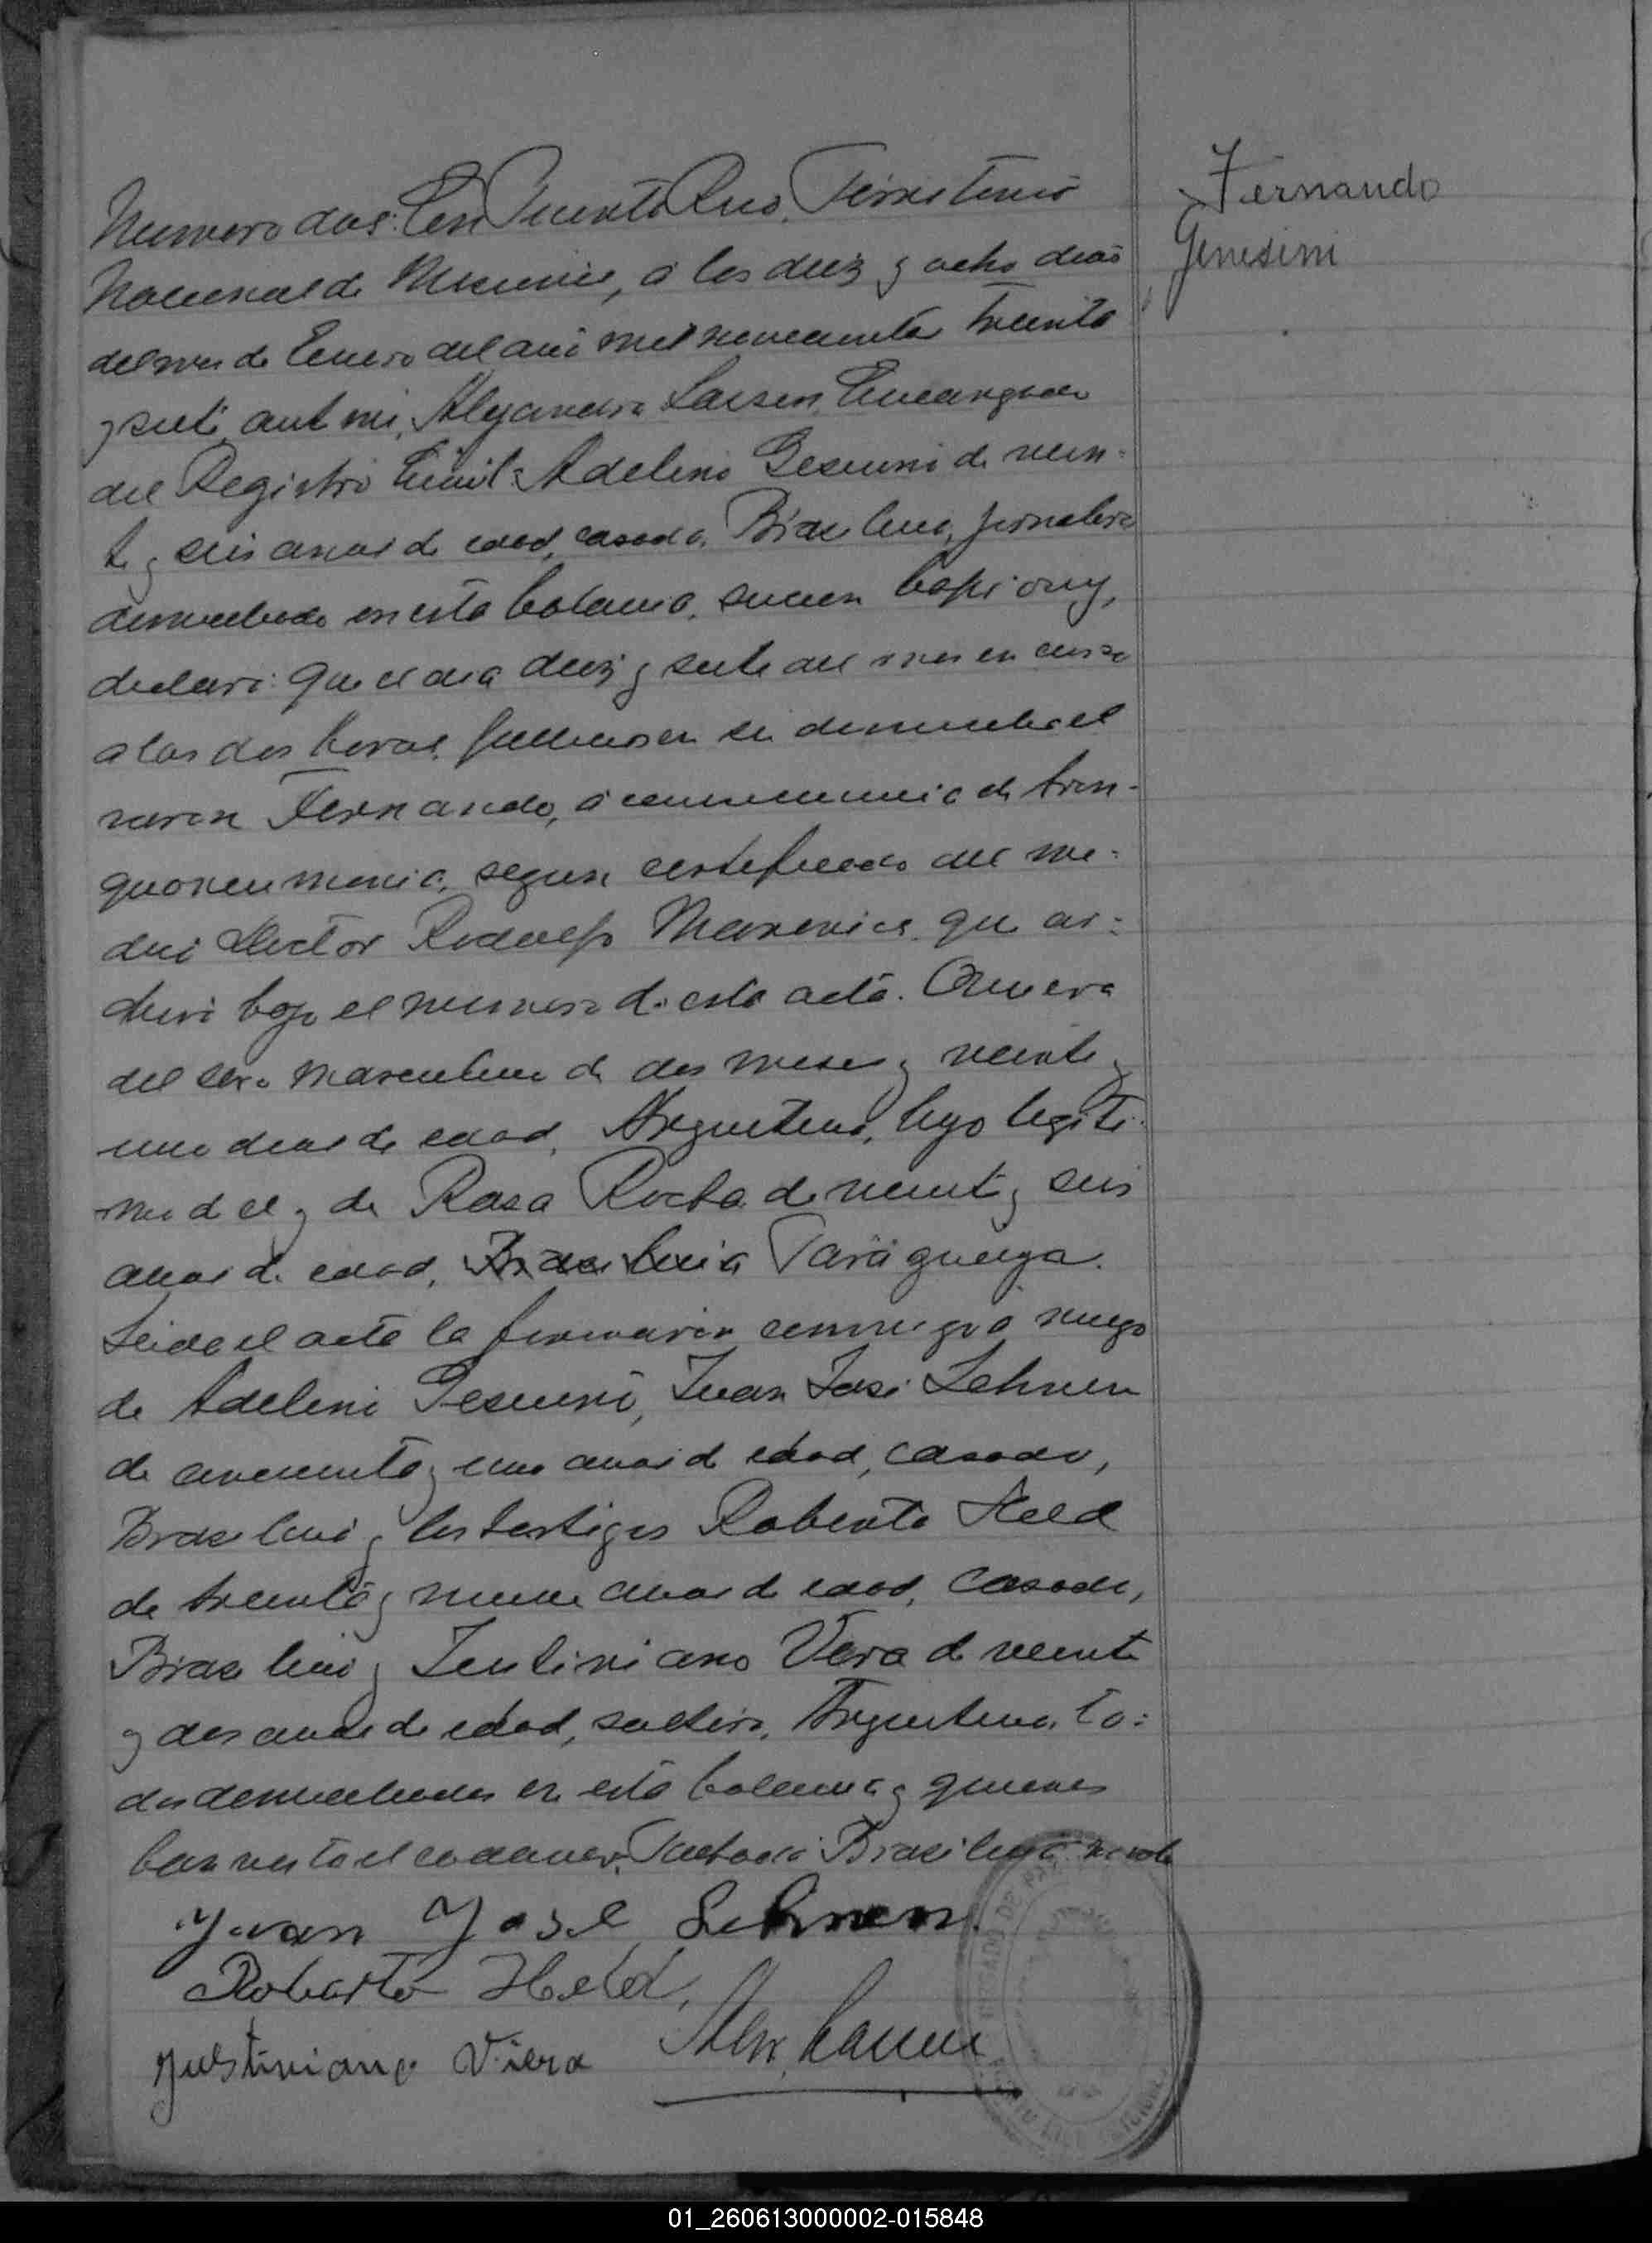 Numero dos: En Puerto Rico, Territorio
Nacional de Misiones, á los diez y ocho dias
del mes de Enero del año mil novecientos treinta
y siete, ante mi, Alejandro Larsen, Encargado
del Registro Civil: Adelino Gesuini de vein-
te y seis años de edad, casado, Brasilero, jornalero
domiciliado en esta Colonia, seccion Capi ovy,
declaró: Que el dia diez y siete del mes en curso
a las dos horas, fallecio en su domicilio el
varon Fernando, á consecuencia de bron-
quoneumonia, segun certificado del me-
dico Hector Rodolfo que ar-
chivo bajo el numero de esta acta. Que era
del sexo masculino de dos meses y veinte y
uno dias de edad, Argentino, hijo legiti-
mo d el y de Rosa Rocha de veinte y seis
años de edad, Brasilera Paraguaya.
Leida el acta la firmaron conmigo a ruego
de Adelino Gesuini, Juan José Lehnen
de cincuenta y uno años de edad, casado,
Brasilero y los testigos Roberto Held
de treinta y nueve años de edad, casado,
Brasilero y Justiniano Vera de veinte
y dos años de edad, soltero, Argentino, to-
dos domiciliados en esta Colonia y quienes
han visto el cadaver. Testado: Brasilera no vale
Juan José Lehnen.
Roberto Held,
Justiniano Viera Alej. Larsen
Fernando
Genesini
01_260613000002-015848